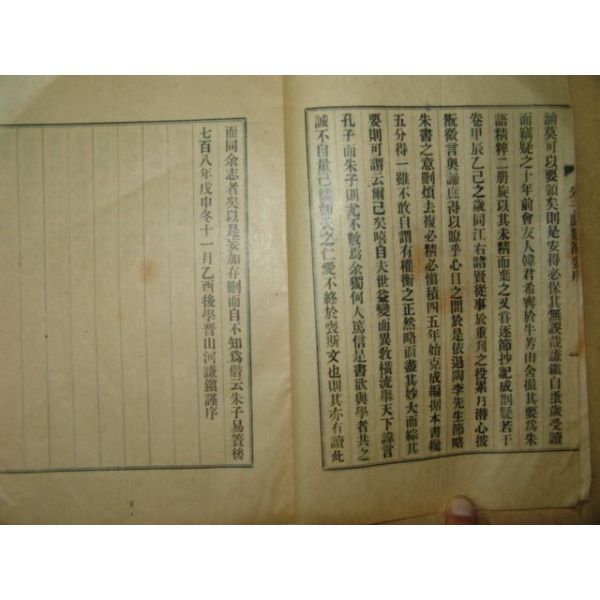 涵莫可以要領矣則是安得必保其無誤哉謙鎭自蚤歲受讀
而竊疑之十年前會友人韓君希寗於牛芳山舍撮其要爲朱
語精粹二册旋以其未精而棄之又甞逐節抄記成劄疑若干
卷甲辰乙巳之歲同江右諸賢從事於重刋之役累月潛心披
翫微言奥論庶得以瞭乎心目之間於是依退陶李先生節略
朱書之意刪煩去複必精必愼積四五年始克成編据本書纔
五分得一雖不敢自謂有權衡之正然略而盡其妙大而綜其
要則可謂云爾已矣嘻自夫世益變而異敎橫流擧天下諱言
孔子而朱子則尤不數焉余獨何人篤信是書欲與學者共之
誠不自量已然如天之仁愛不終於喪斯文也則其亦有讀此
而同余志者矣以是妄加存刪而自不知爲僣云朱子易簀後
七百八年戊申冬十一月乙酉後學晉山河謙鎭謹序